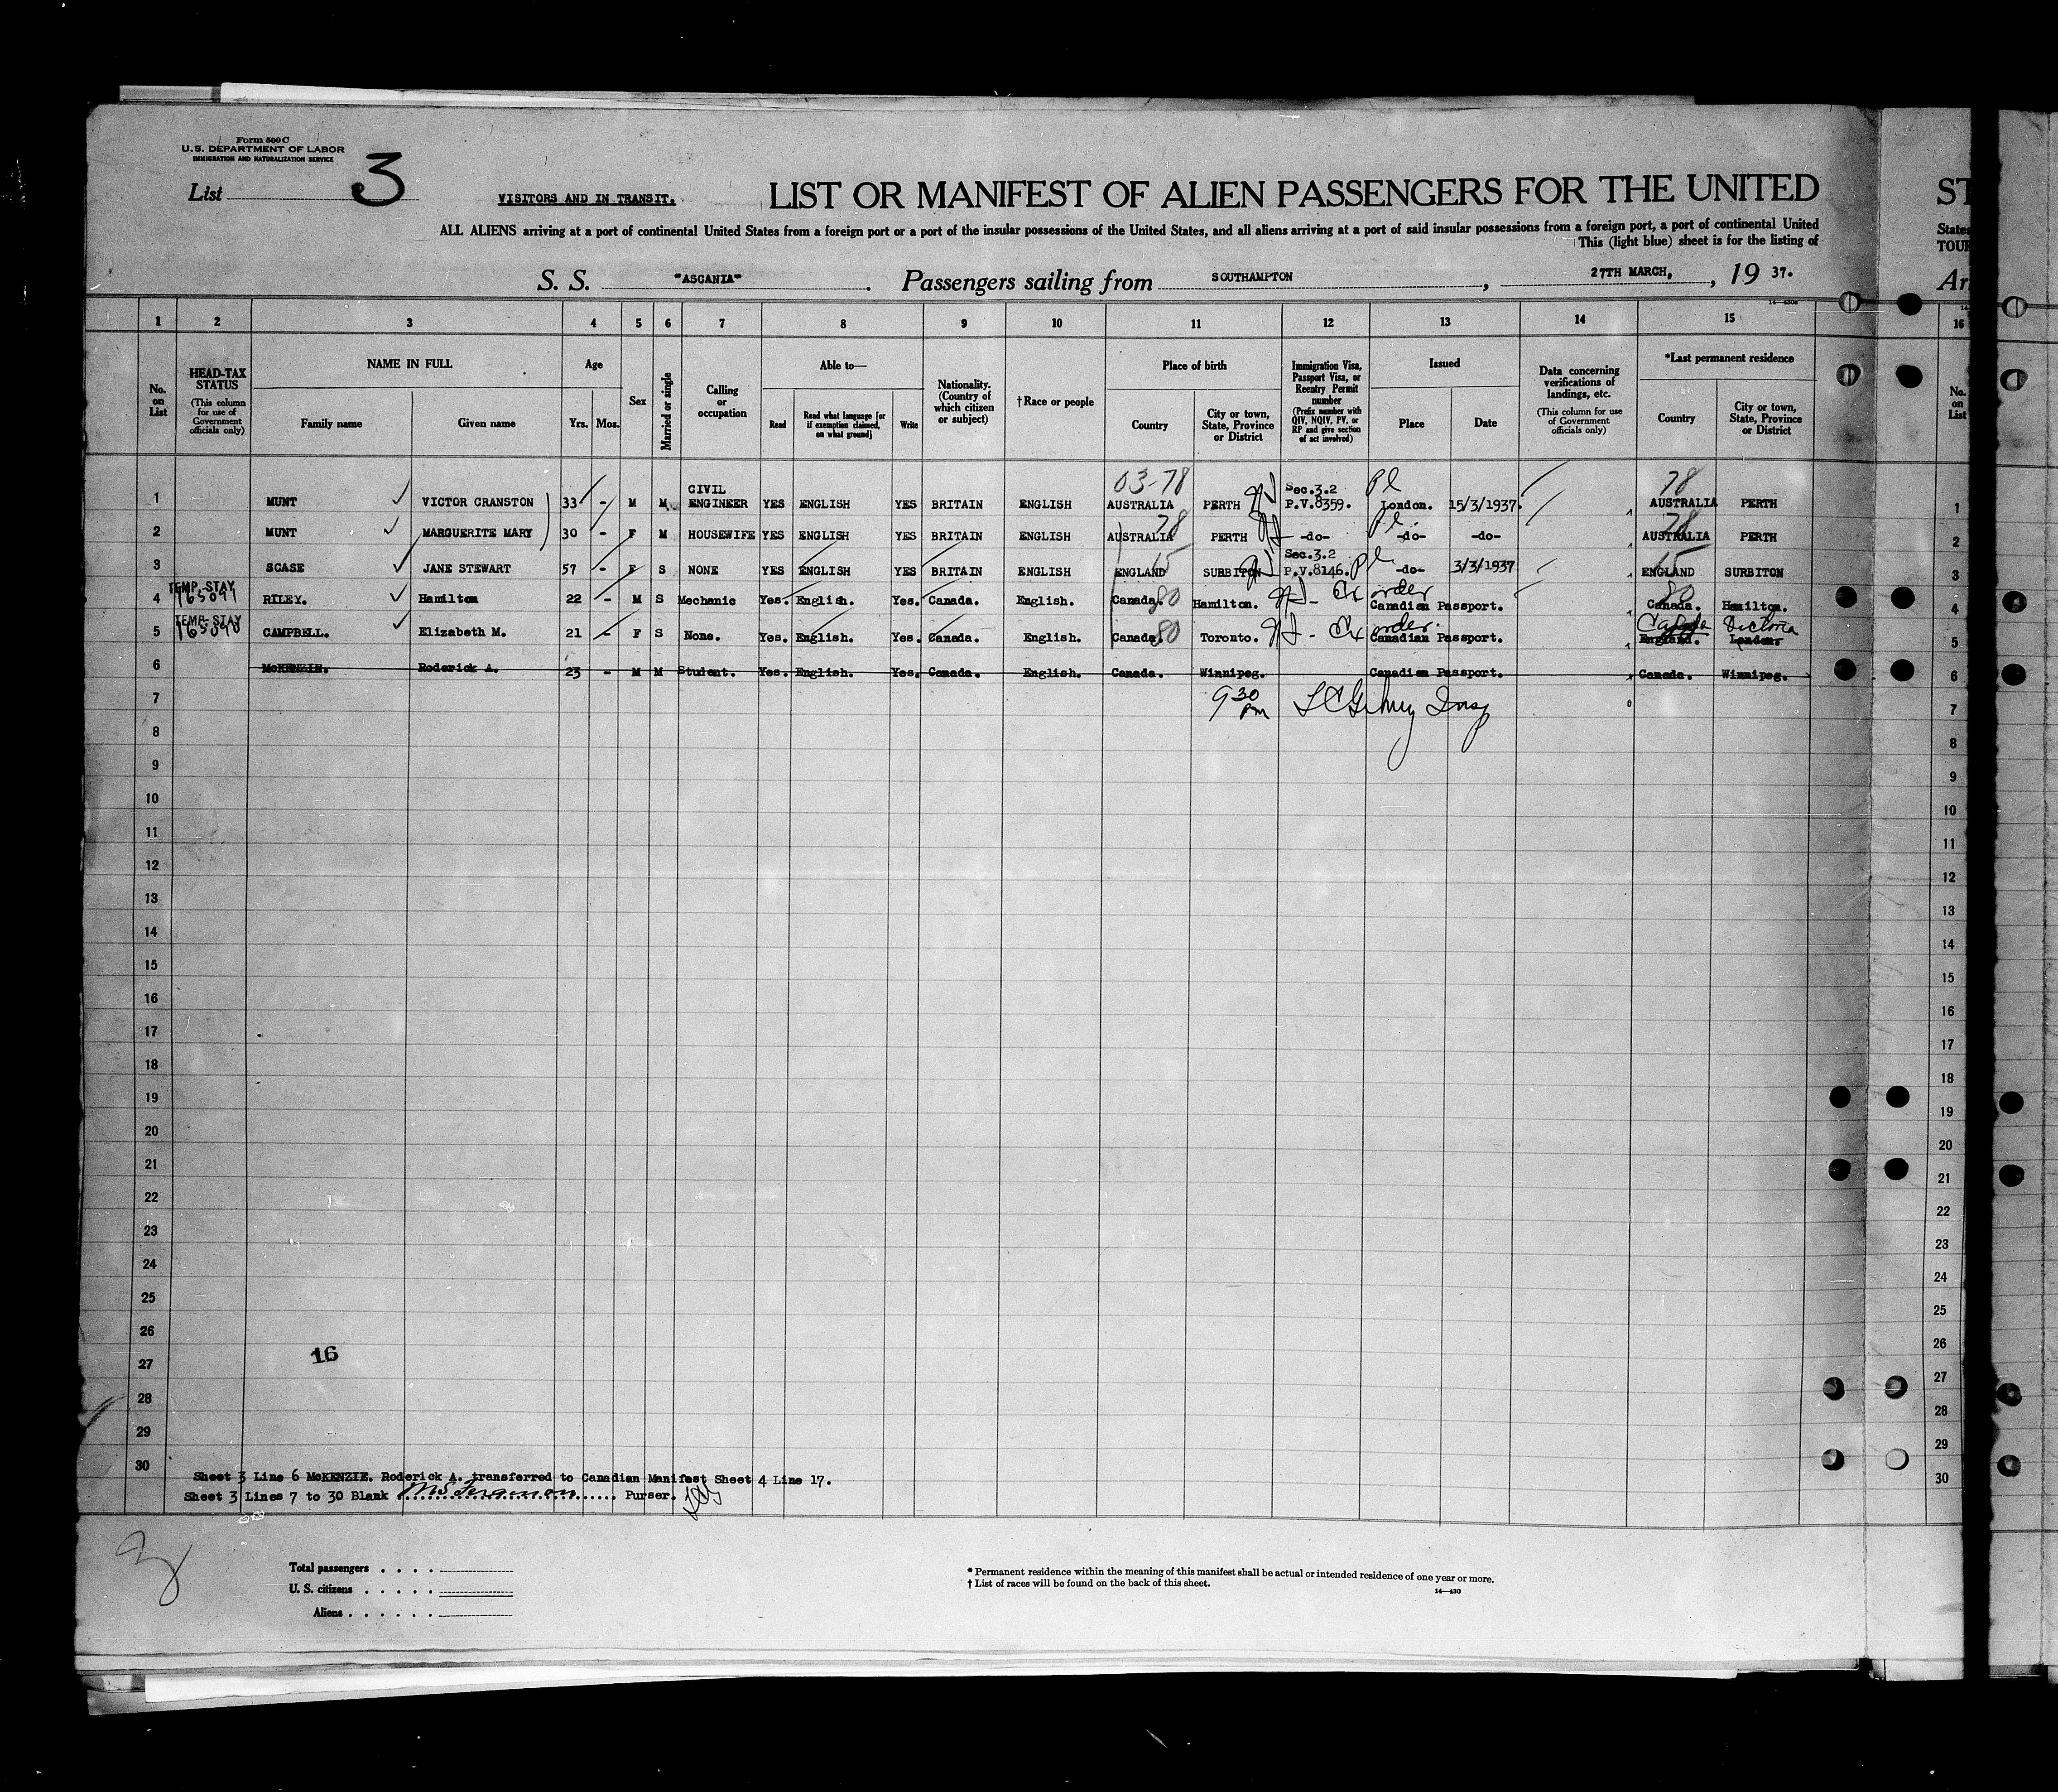 Form 500 C
U. S. DEPARTMENT OF LABOR
IMMIGRATION AND NATURALIZATION SERVICE
List 3
VISITORS AND IN TRANSIT.
LIST OR MANIFEST OF ALIEN PASSENGERS FOR THE UNITED
ST
ALL ALIENS arriving at a port of continental United States from a foreign port or a port of the insular possessions of the United States, and all aliens arriving at a port of said insular possessions from a foreign port, a port of continental United
States
This (light blue) sheet is for the listing of
TOUR
S. S. "ASCANIA". Passengers sailing from SOUTHAMPTON, 27TH MARCH, , 19 37.
Ar
1 2 3 4 5 6 7 8 9 10 11 12 13 14 15 16
No. on List
HEAD-TAX STATUS (This column for use of Government officials only)
NAME IN FULL
Family name Given name
Age
Yrs. Mos.
Sex
Married or single
Calling or occupation
Able to—
Read Read what language [or if exemption claimed, on what ground] Write
Nationality. (Country of which citizen or subject)
†Race or people
Place of birth
Country City or town, State, Province or District
Immigration Visa, Passport Visa, or Reentry Permit number (Prefix number with QIV, NQIV, PV, or RP and give section of act involved)
Issued
Place Date
Data concerning verifications of landings, etc. (This column for use of Government officials only)
*Last permanent residence
Country City or town, State, Province or District
No. on List
03-78 78
1 MUNT VICTOR CRANSTON 33 - M M CIVIL ENGINEER YES ENGLISH YES BRITAIN ENGLISH AUSTRALIA PERTH Sec.3.2 P.V.8359. London. 15/3/1937. AUSTRALIA PERTH 1
78 78
2 MUNT MARGUERITE MARY 30 - F M HOUSEWIFE YES ENGLISH YES BRITAIN ENGLISH AUSTRALIA PERTH -do- -do- -do- AUSTRALIA PERTH 2
15 15
3 SCASE JANE STEWART 57 - F S NONE YES ENGLISH YES BRITAIN ENGLISH ENGLAND SURBITON Sec.3.2 P.V.8146. -do- 3/3/1937 ENGLAND SURBITON 3
TEMP-STAY
4 RILEY. Hamilton 22 - M S Mechanic Yes. English. Yes. Canada. English. Canada. 80 Hamilton. Ex order Canadian Passport. 80 Canada. Hamilton. 4
TEMP-STAY
5 CAMPBELL. Elizabeth M. 21 - F S None. Yes. English. Yes. Canada. English. Canada 80 Toronto. Ex order. Canadian Passport. Canada Victoria England. London. 5
6 McKENZIE. Roderick A. 23 - M M Student. Yes. English. Yes. Canada. English. Canada. Winnipeg. Canadian Passport. Canada. Winnipeg. 6
7 9 30 pm Insp 7
8 8
9 9
10 10
11 11
12 12
13 13
14 14
15 15
16 16
17 17
18 18
19 19
20 20
21 21
22 22
23 23
24 24
25 25
26 26
16
27 27
28 28
29 29
30 30
Sheet 3 Line 6 McKENZIE. Roderick A. transferred to Canadian Manifest Sheet 4 Line 17.
Sheet 3 Lines 7 to 30 Blank Purser.
Total passengers . . . .
U. S. citizens . . . . .
Aliens . . . . . .
* Permanent residence within the meaning of this manifest shall be actual or intended residence of one year or more.
† List of races will be found on the back of this sheet.
14—430